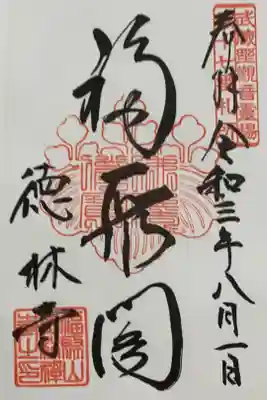 武蔵野觀音霊場
奉拝 令和三年八月一日
福聚閣
徳林寺